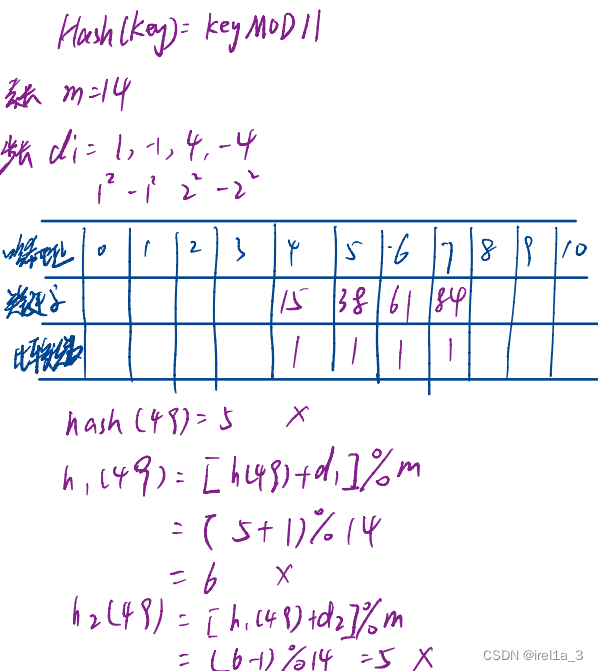 Hash(key)= key MOD 11
表长 m=14
步长 di= 1, -1, 4, -4
1² -1² 2² -2²
哈希地址 0 1 2 3 4 5 6 7 8 9 10
关键字 15 38 61 84
比较次数 1 1 1 1
hash(49)=5 ×
h₁(49) = [h(49)+d₁]%m
= (5+1)%14
= 6 ×
h₂(49) = [h₁(49)+d₂]%m
= (6-1)%14 =5 ×
CSDN @irel1a_3